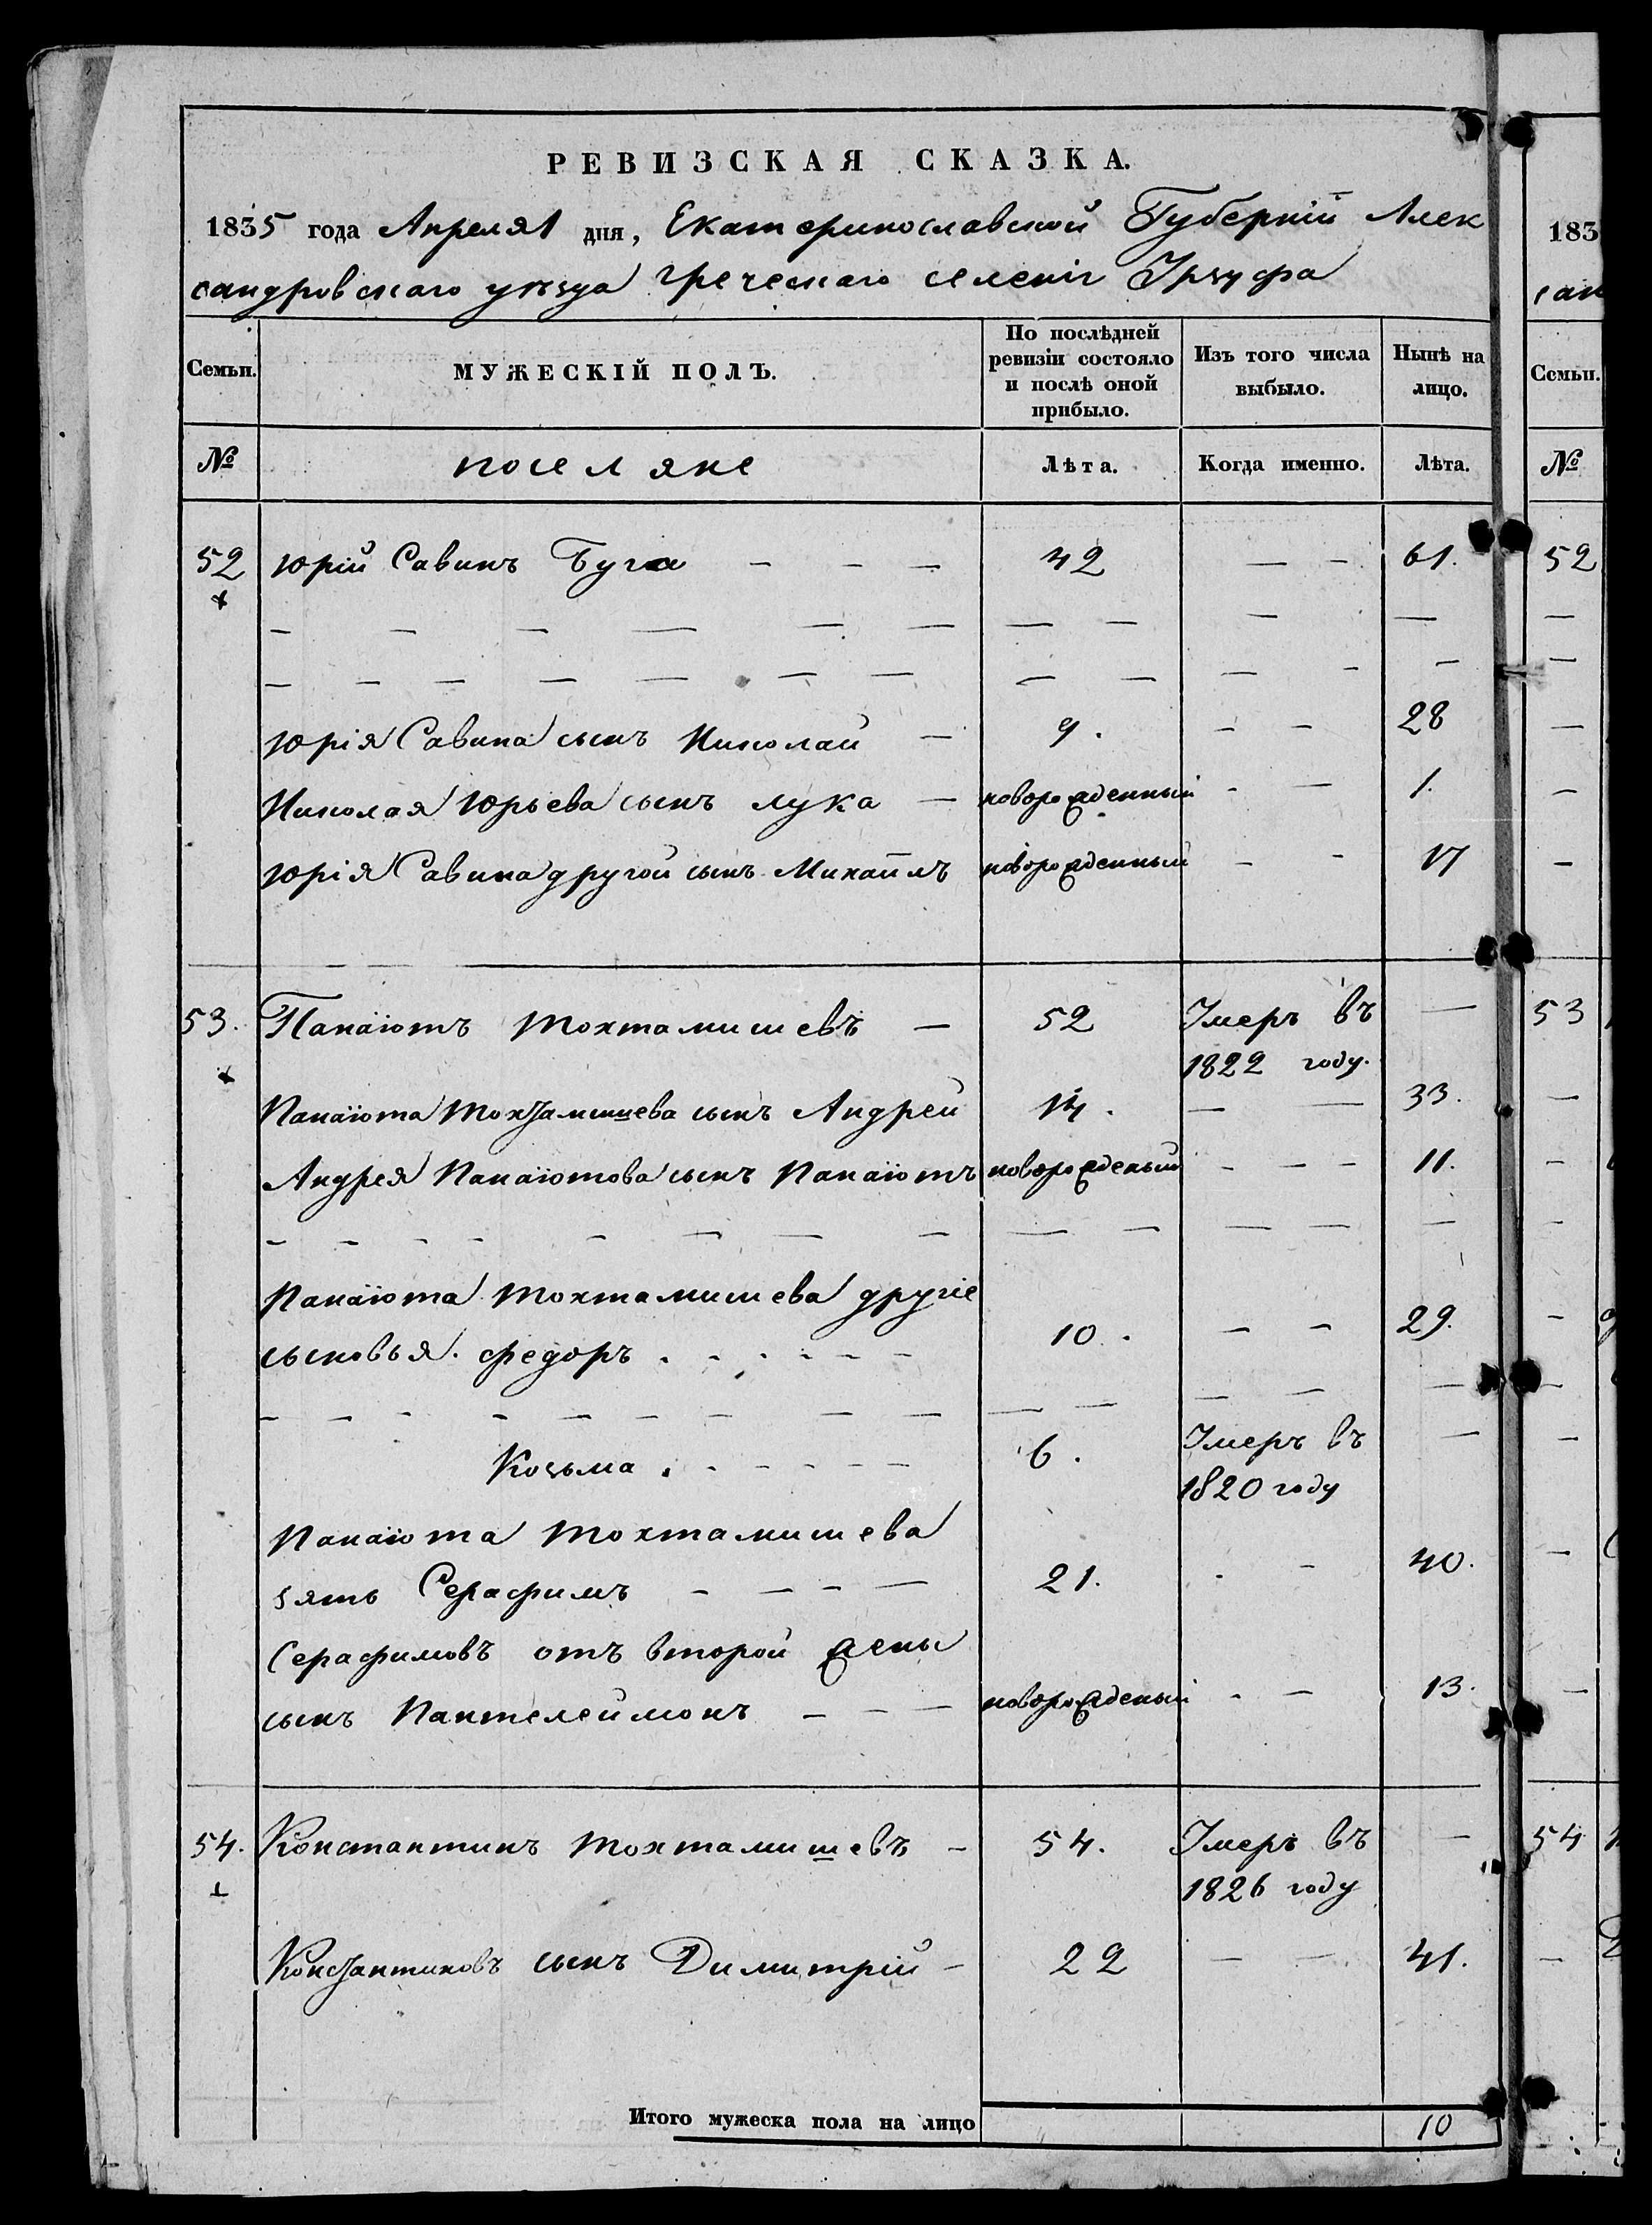 РЕВИЗСКАЯ СКАЗКА.
1835 года Апреля 1 дня, Екатеринославской Губернїи Алек
сандровскаго уѣзда Греческаго селенія Урзуфа
Семьи. МУЖЕСКІЙ ПОЛЪ. По послѣдней ревизіи состояло и послѣ оной прибыло. Изъ того числа выбыло. Нынѣ на лицо.
№ поселяне Лѣта. Когда именно. Лѣта.
52 Юрій Савинъ Буга — — — 42 — — 61.
Юрія Савина сынъ Николай — 9. — — 28
Николая Юрьева сынъ лука — новорожденный — — 1.
Юрія Савина другой сынъ Михаїлъ новорожденный — — 17
53. Панаіотъ Тохтамишевъ — 52 Умеръ въ —
1822 году.
Панаіота Тохтамишева сынъ Андрей 14. — — 33.
Андрея Панаіотова сынъ Панаіотъ новорожденый — — — 11.
Панаіота Тохтамишева другіе
сыновья. федоръ 10. — — 29.
Козьма 6. Умеръ въ —
1820 году
Панаіота Тохтамишева
зять Серафимъ — — — — 21. - — 40.
Серафимовъ отъ второй жены
сынъ Пантелеймонъ — — — новорожденый - — 13.
54. Константинъ Тохтамишевъ - 54. Умеръ въ —
1826 году
Константиновъ сынъ Димитрій - 22 — — 41.
Итого мужеска пола на лицо 10
183
сан
Семьи.
№
52
53
54